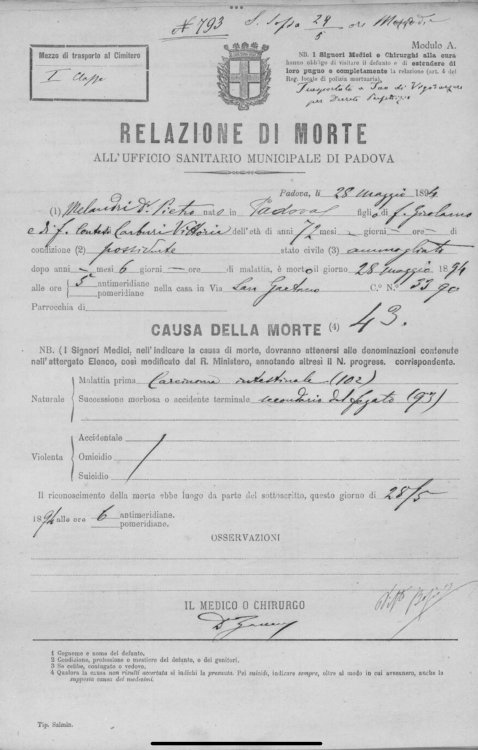 N 793 S. Sofia 29/5
Mezzo di trasporto al Cimitero
I Classe
Modulo A.
NB. I Signori Medici e Chirurghi alla cura
hanno obbligo di visitare il defunto e di estendere di
loro pugno e completamente la relazione (art. 4 del
Reg. locale di polizia mortuaria).
RELAZIONE DI MORTE
ALL'UFFICIO SANITARIO MUNICIPALE DI PADOVA
Padova, li 28 maggio 1894
(1) Melandri Dr. Pietro nato in Padova figlio f. Girolamo
e di f. Contessa Carburi Vittoria dell'età di anni 72 mesi — giorni — ore — di
condizione (2) possidente stato civile (3) ammogliato
dopo anni — mesi 6 giorni — ore — di malattia, è morto il giorno 28 maggio 1894
alle ore 5 antimeridiane pomeridiane nella casa in Via San Gaetano C.° N.° 3390
Parrocchia di
CAUSA DELLA MORTE (4) 43.
NB. (I Signori Medici, nell'indicare la causa di morte, dovranno attenersi alle denominazioni contenute
nell'attergato Elenco, così modificato dal R. Ministero, annotando altresì il N. progress. corrispondente.
Naturale Malattia prima Carcinoma intestinale (102)
Successione morbosa o accidente terminale secondario del fegato (93)
Violenta Accidentale
Omicidio
Suicidio
Il riconoscimento della morte ebbe luogo da parte del sottoscritto, questo giorno di 28/5
1894 alle ore 6 antimeridiane. pomeridiane.
OSSERVAZIONI
IL MEDICO O CHIRURGO
1 Cognome e nome del defunto.
2 Condizione, professione o mestiere del defunto, o dei genitori.
3 Se celibe, coniugato o vedovo.
4 Qualora la causa non risulti accertata si indichi la presunta. Pei suicidi, indicare sempre, oltre al modo in cui avvennero, anche la
supposta causa dei medesimi.
Tip. Salmin.